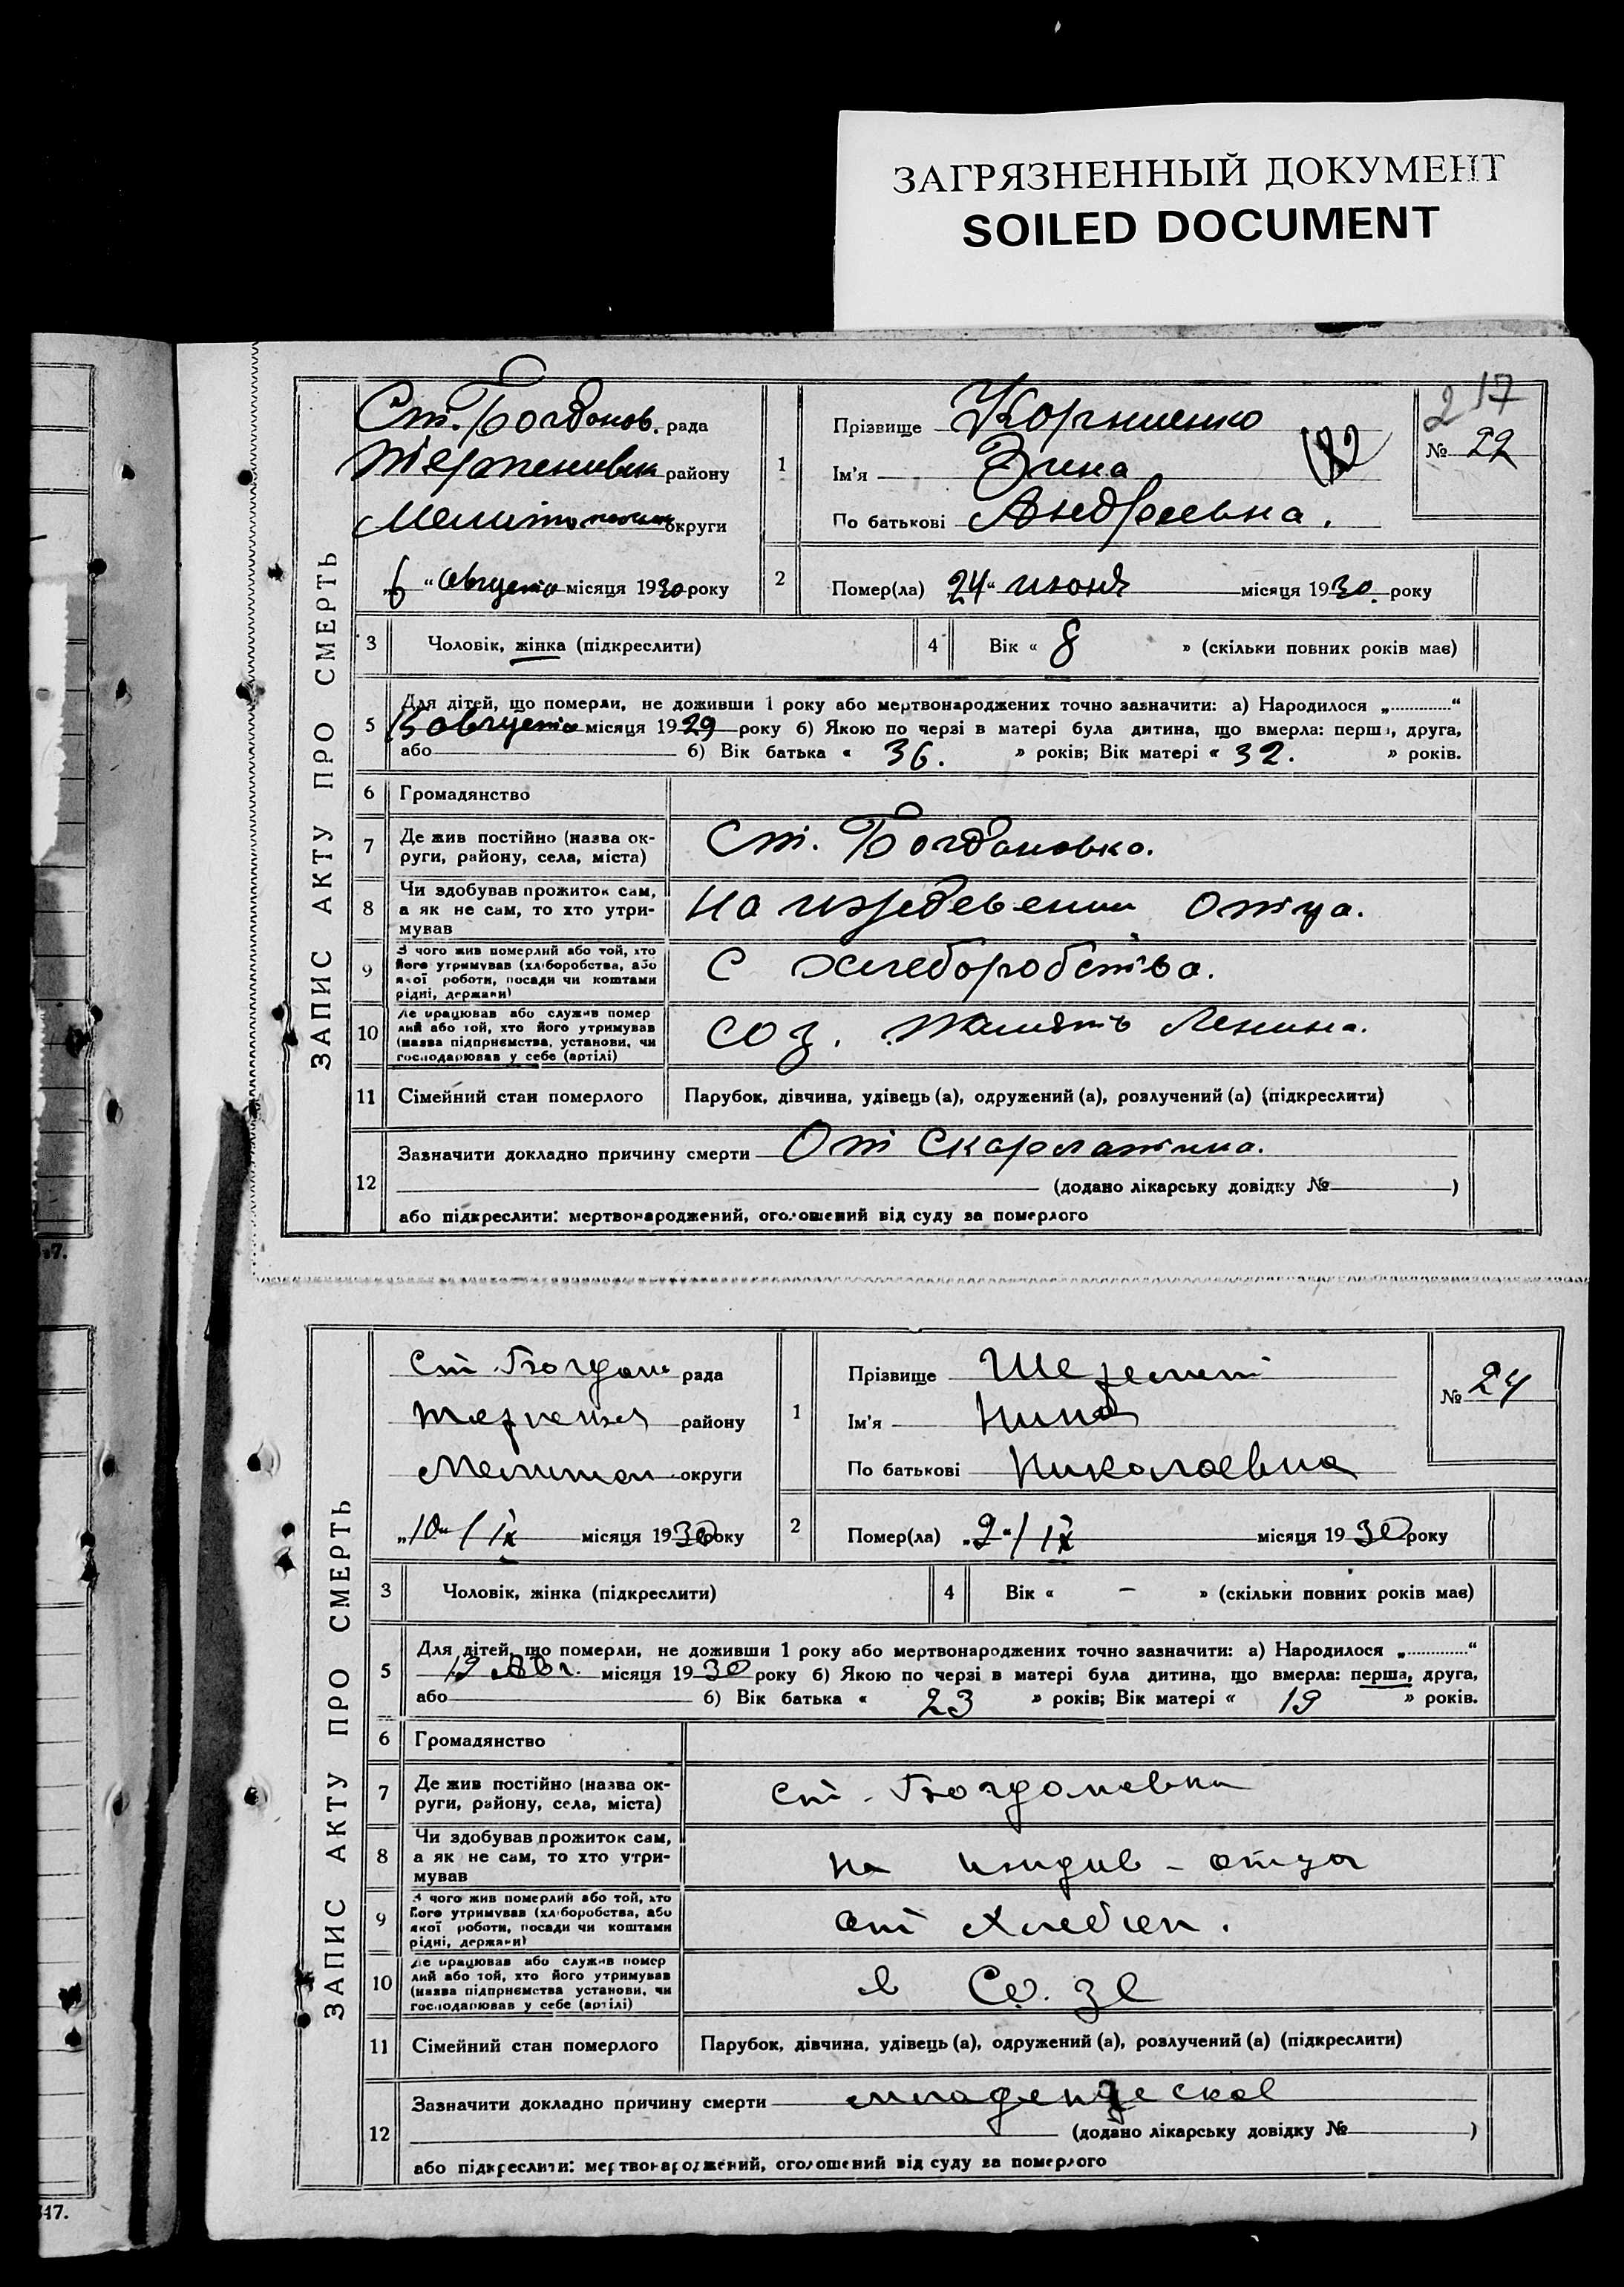 ЗАГРЯЗНЕННЫЙ ДОКУМЕНТ
SOILED DOCUMENT
217
ЗАПИС АКТУ ПРО СМЕРТЬ
Ст. Богданов. рада
району
округи
„6“ Августа місяця 1930 року
1
Прізвище
Ім'я
По батькові Андреевна.
№ 22
2
Помер(ла) „24“ июня місяця 1930. року
3 Чоловік, жінка (підкреслити)
4 Вік « 8 » (скільки повних років має)
5 Для дітей, що померли, не доживши 1 року або мертвонароджених точно зазначити: а) Народилося „............“
августа місяця 1929 року б) Якою по черзі в матері була дитина, що вмерла: перша, друга,
або б) Вік батька « 36. » років; Вік матері « 32. » років.
6 Громадянство
7 Де жив постійно (назва ок-
руги, району, села, міста)
Ст. Богдановка.
8 Чи здобував прожиток сам,
а як не сам, то хто утри-
мував
на отца.
9 З чого жив померлий або той, хто
його утримував (хліборобства, або
якої роботи, посади чи коштами
рідні, держави)
С хлеборобства.
10 Де працював або служив помер
лий або той, хто його утримував
(назва підприємства, установи, чи
господарював у себе (артілі)
соз. Память Ленина.
11 Сімейний стан померлого Парубок, дівчина, удівець (а), одружений (а), розлучений (а) (підкреслити)
12 Зазначити докладно причину смерти От Скарлатина.
(додано лікарську довідку № )
або підкреслити: мертвонароджений, оголошений від суду за померлого
ЗАПИС АКТУ ПРО СМЕРТЬ
Ст. Богдан рада
району
Мелитоп округи
„10“ / IX місяця 1930 року
1
Прізвище Шеремет
Ім'я Нина
По батькові Николаевна
№ 24
2
Помер(ла) „2“ / IX місяця 1930 року
3 Чоловік, жінка (підкреслити)
4 Вік « – » (скільки повних років має)
5 Для дітей, що померли, не доживши 1 року або мертвонароджених точно зазначити: а) Народилося „............“
19 Авг. місяця 1930 року б) Якою по черзі в матері була дитина, що вмерла: перша, друга,
або б) Вік батька « 23 » років; Вік матері « 19 » років.
6 Громадянство
7 Де жив постійно (назва ок-
руги, району, села, міста)
Ст. Богдановка
8 Чи здобував прожиток сам,
а як не сам, то хто утри-
мував
на иждив – отца
9 З чого жив померлий або той, хто
його утримував (хліборобства, або
якої роботи, посади чи коштами
рідні, держави)
от
10 Де працював або служив помер
лий або той, хто його утримував
(назва підприємства установи, чи
господарював у себе (артілі)
в Созе
11 Сімейний стан померлого Парубок, дівчина, удівець (а), одружений (а), розлучений (а) (підкреслити)
12 Зазначити докладно причину смерти
(додано лікарську довідку № )
або підкреслити: мертвонароджений, оголошений від суду за померлого